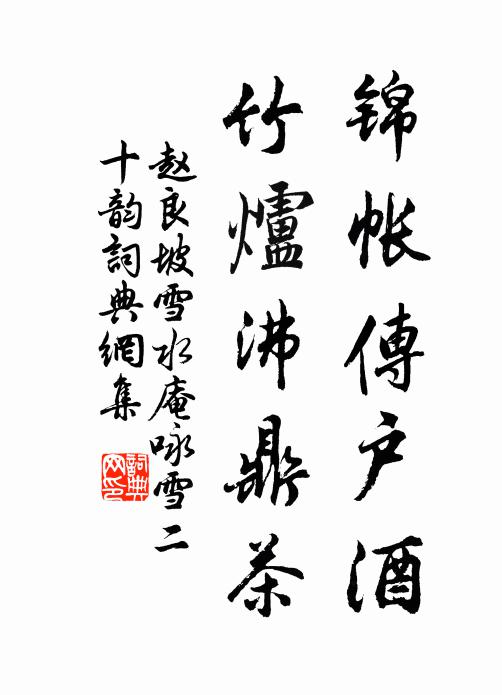 锦帐傳户酒
竹爐沸鼎茶
赵良坡雪水庵咏雪二
十韵詞典網集
詞典
网印